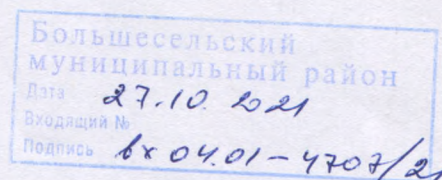 Большесельский
муниципальный район
Дата 27.10.2021
Входящий №
Подпись вх 04.01-4707/21